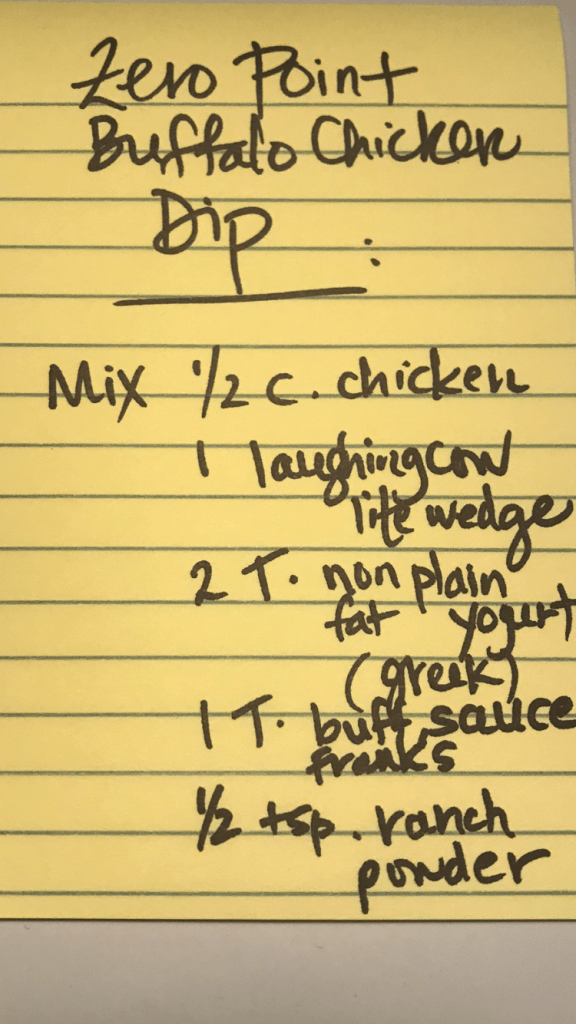 Zero Point
Buffalo Chicken
Dip :
Mix 1/2 c. chicken
1 laughing cow
lite wedge
2 T. non plain
fat yogurt
(greek)
1 T. buff. sauce
franks
1/2 tsp. ranch
powder